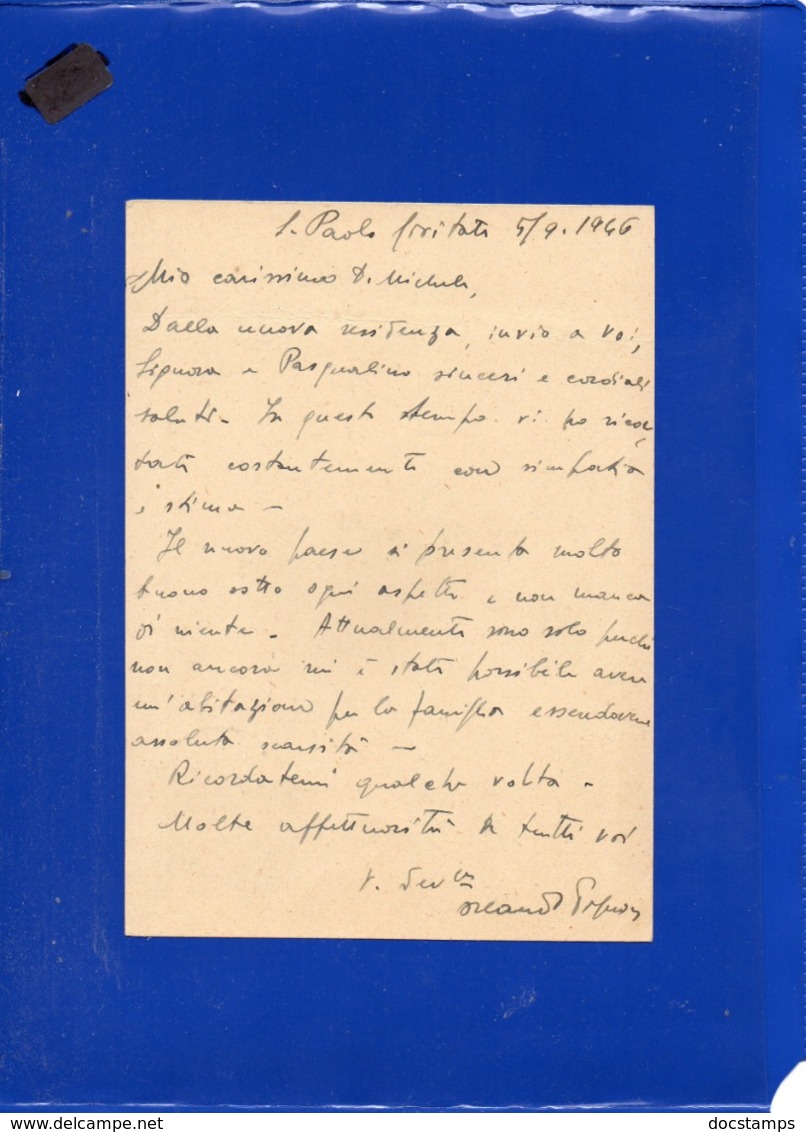 S. Paolo Civitate 5/9.1946
Mio carissimo D. Michele,
Dalla nuova residenza, invio a voi,
Signora e Pasqualino sinceri e cordiali
saluti - In questo tempo vi ho ricor,
dati costantemente con simpatia
e stima -
Il nuovo paese si presenta molto
buono sotto ogni aspetto e non manca
di niente - Attualmente sono solo perché
non ancora mi è stato possibile avere
un'abitazione per la famiglia essendovene
assoluta scarsità -
Ricordatemi qualche volta -
Molte affettuosità a tutti voi
V. dev.mo
delcampe.net
docstamps